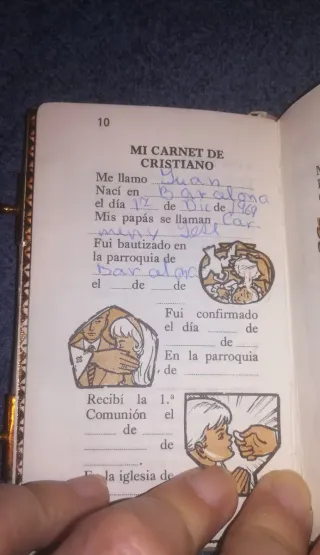 10
MI CARNET DE
CRISTIANO
Me llamo Juan
Nací en Baralona
el día 12 de Dic de 1969
Mis papás se llaman Car
men y José
Fui bautizado en
la parroquia de
Baralona
el ____ de ____ de
____
Fui confirmado
el día ____ de
____ de ____
En la parroquia
de ____
Recibí la 1.ª
Comunión el
____ de ____
____ de
____.
En la iglesia de